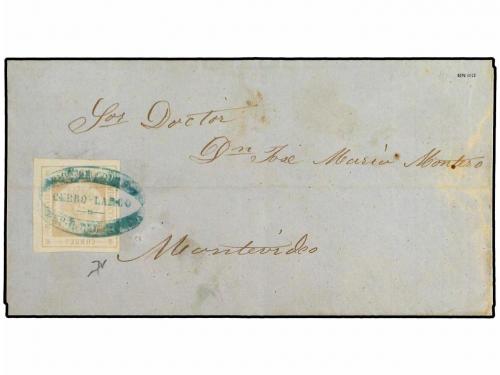 Sor Doctor
Dn José Maria Montero
CERRO-LARGO
Montevideo